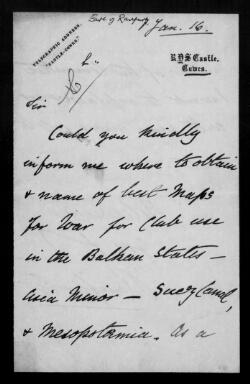 Earl of Ranfurly
Jan. 16.
TELEGRAPHIC ADDRESS,
"CASTLE-COWES."
R.Y.S. Castle.
Cowes.
Sir
Could you kindly
inform me where to obtain
& name of best Maps
for War for Club use
in the Balkan States –
Asia Minor – Suez Canal,
& Mesopotamia. As a